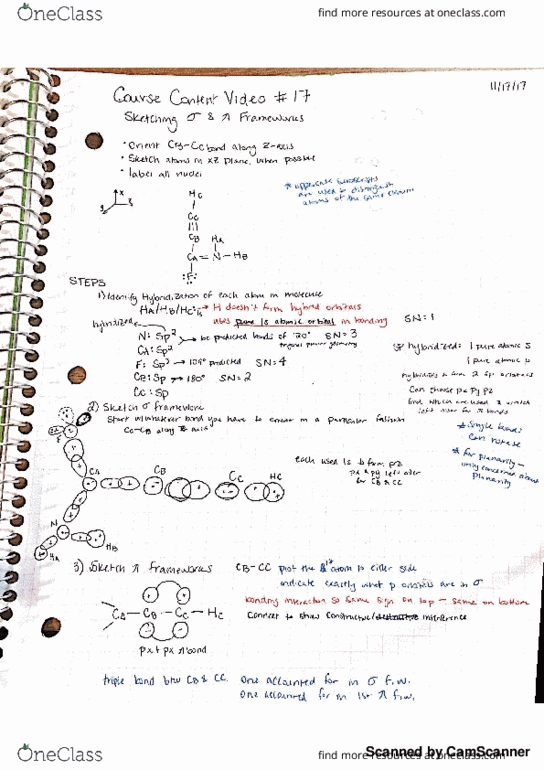 OneClass
find more resources at oneclass.com
11/17/17
Course Content Video #17
Sketching σ & π Frameworks
• Orient CB-CC bond along Z-axis
• Sketch atoms in XZ plane, when possible
• label all nuclei
* uppercase subscripts
are used to distinguish
atoms of the same element
x
y
z
HC
CC
CB HA
CA = N - HB
:F:
STEPS
1) Identify Hybridization of each atom in molecule
HA/HB/HC: → H doesn't form hybrid orbitals
uses pure 1s atomic orbital in bonding SN=1
hybridized
N: Sp² → predicted 120° SN=3
CA: Sp²
trigonal planar geometry
F: Sp³ → 109° predicted SN=4
CB: Sp → 180° SN=2
CC: Sp
sp hybridized: 1 pure atomic s
1 pure atomic p
hybridizes to form 2 sp orbitals
Can choose px py pz
left over for π bonds
2) Sketch σ framework
Start w/ whatever bond you have to orient in a particular fashion
CC-CB along z axis
* Single bonds
can rotate
* for planarity -
only concerned about
planarity
F
CA
CB
CC
HC
N
HA
HB
each used s to form pz
px & py left over
for CB & CC
3) Sketch π frameworks
CB-CC plot the atom to either side
indicate exactly what p orbitals are in σ
bonding interaction so same sign on top - same on bottom
connect to show constructive/destructive interference
CA - CB - CC - HC
px + px π bond
triple bond btw CB & CC. One accounted for in σ f.w.
One accounted for in 1st π f.w.
OneClass
find more resources at oneclass.com
Scanned by CamScanner